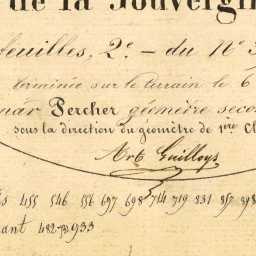 de la Jouvergn
feuilles, 2e. - du N° 3
terminée sur le terrain le 6
par Percher géomètre secon
sous la direction du géomètre de 1ère Cl
Art Guilloys
455 546 556 697 698 714 719 831 857 898
ant 482 933